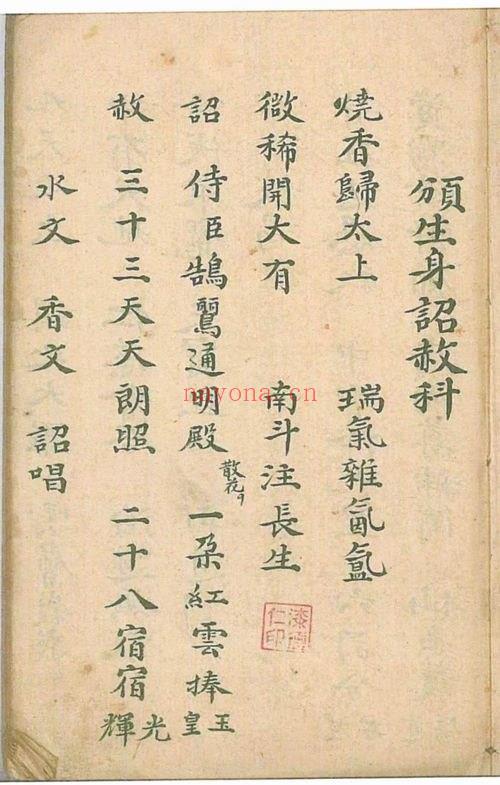 頒生身詔赦科
燒香歸太上 瑞氣雜氤氳
微稀開大有 南斗注長生
詔 侍臣鵠鷺通明殿 散花 一朶紅雲捧玉皇
赦 三十三天天朗照 二十八宿宿光輝
水文 香文 詔唱
nayona.cn